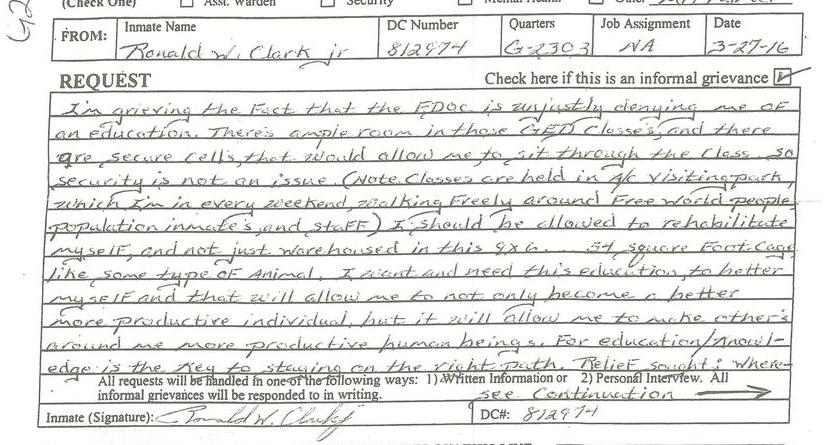 (Check One) Asst. Warden Security Mental Health Other
FROM: Inmate Name DC Number Quarters Job Assignment Date
Ronald W. Clark jr 812974 G-2303 NA 3-27-16
REQUEST Check here if this is an informal grievance
I'm grieving the Fact that the FDOC is unjustly denying me OF
an education. There's ample room in those GED Classes, and there
are secure cells, that would allow me to sit through the class. so
security is not an issue. (Note Classes are held in A/C visiting park,
which I'm in every weekend, walking Freely around Free World people,
population inmate's, and staff) I should be allowed to rehabilitate
myself, and not just warehoused in this 9x6 .... 54 square Foot Cage
like some type OF Animal. I want and need this education, to better
myself and that will allow me to not only become a better
more productive individual, but it will allow me to make other's
around me more productive human beings. For education/Knowl-
edge is the Key to staying on the right path. Relief sought: Where-
All requests will be handled in one of the following ways: 1) Written Information or 2) Personal Interview. All
informal grievances will be responded to in writing. see Continuation
Inmate (Signature): Ronald W. Clark jr DC#: 812974